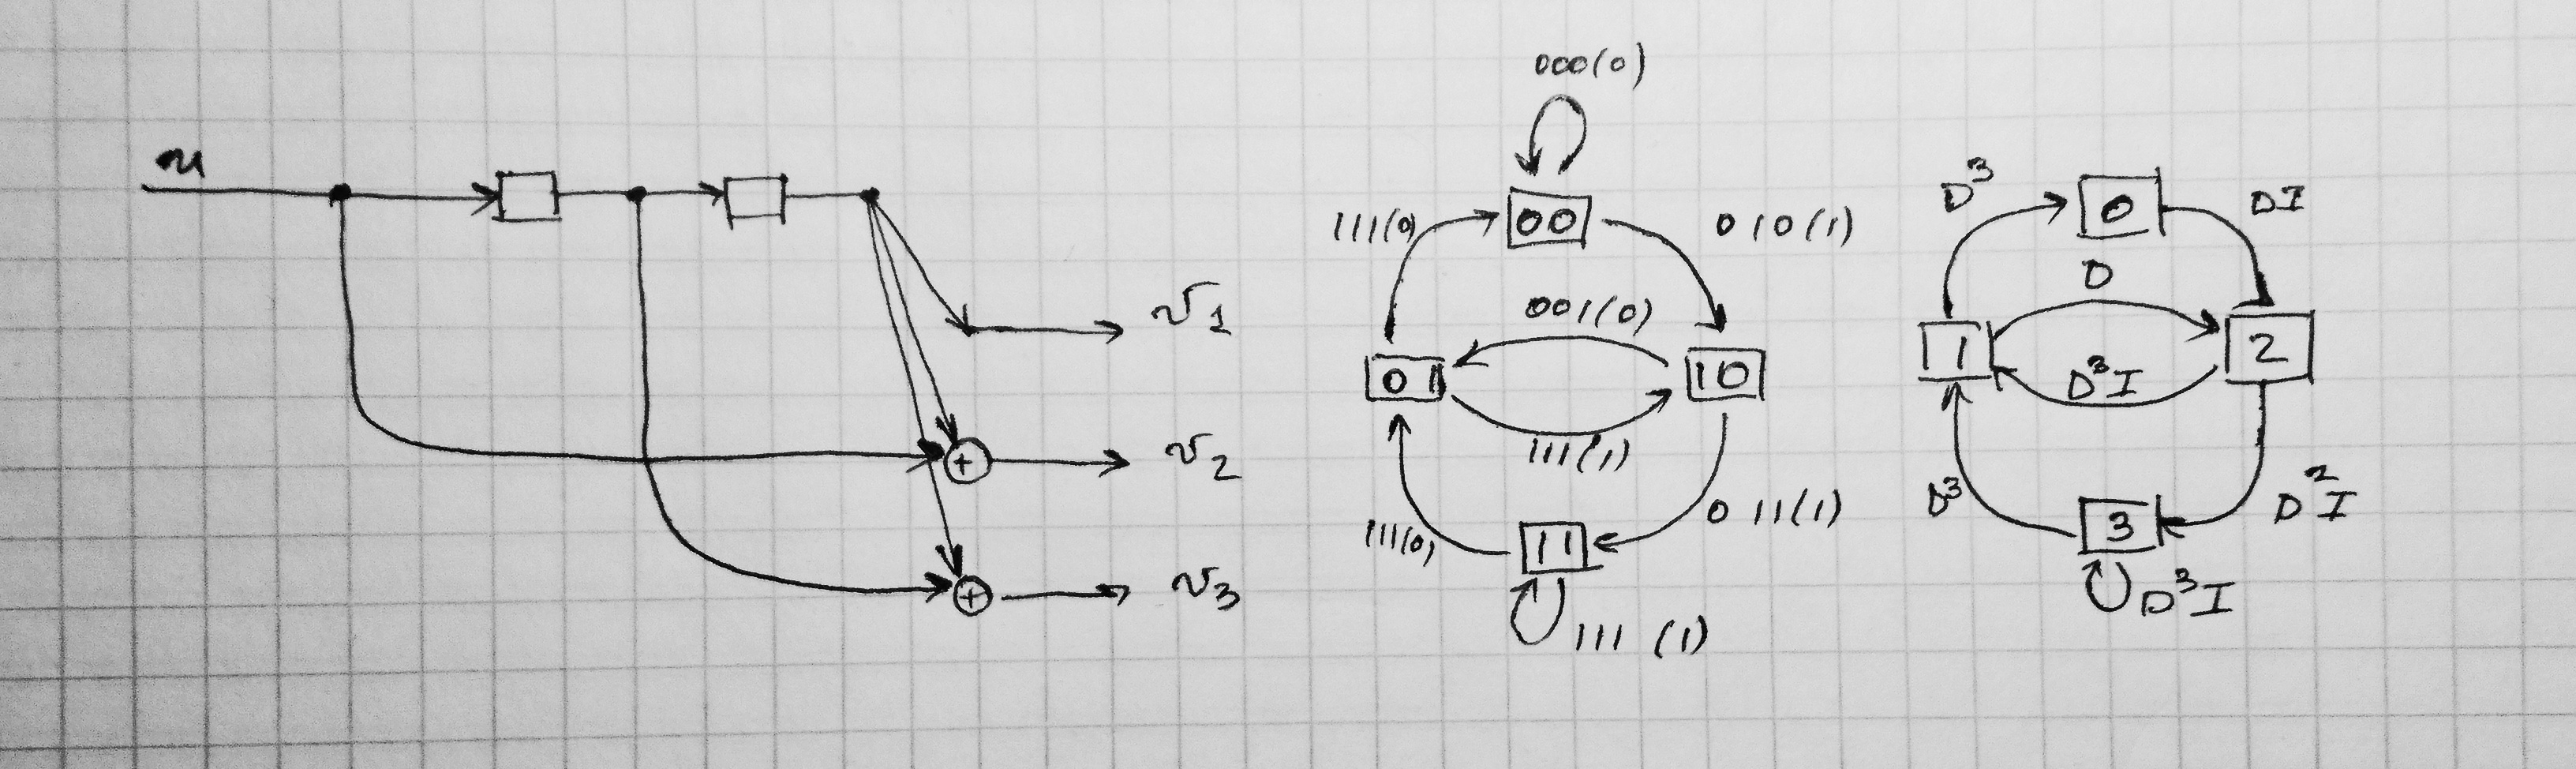 u
v1
v2
v3
000(0)
00
111(0)
010(1)
001(0)
01
10
111(1)
111(0)
011(1)
11
111 (1)
D³
0
DI
D
1
2
D³I
D³
3
D²I
D³I